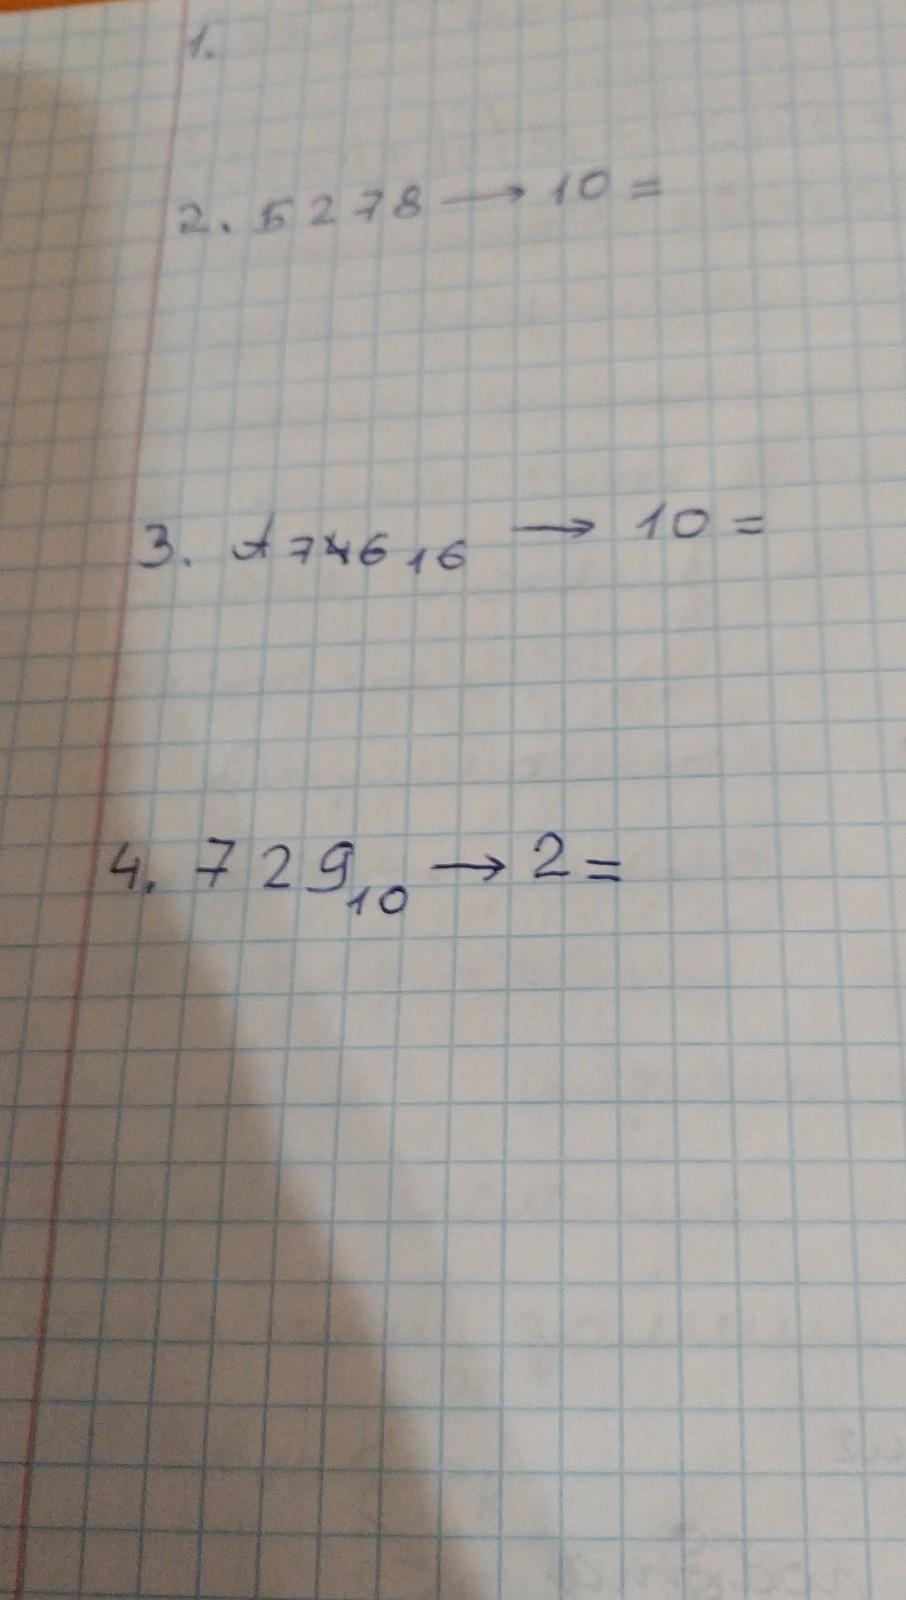 1.
2. 5278 → 10 =
3. A746₁₆ → 10 =
4. 729₁₀ → 2 =